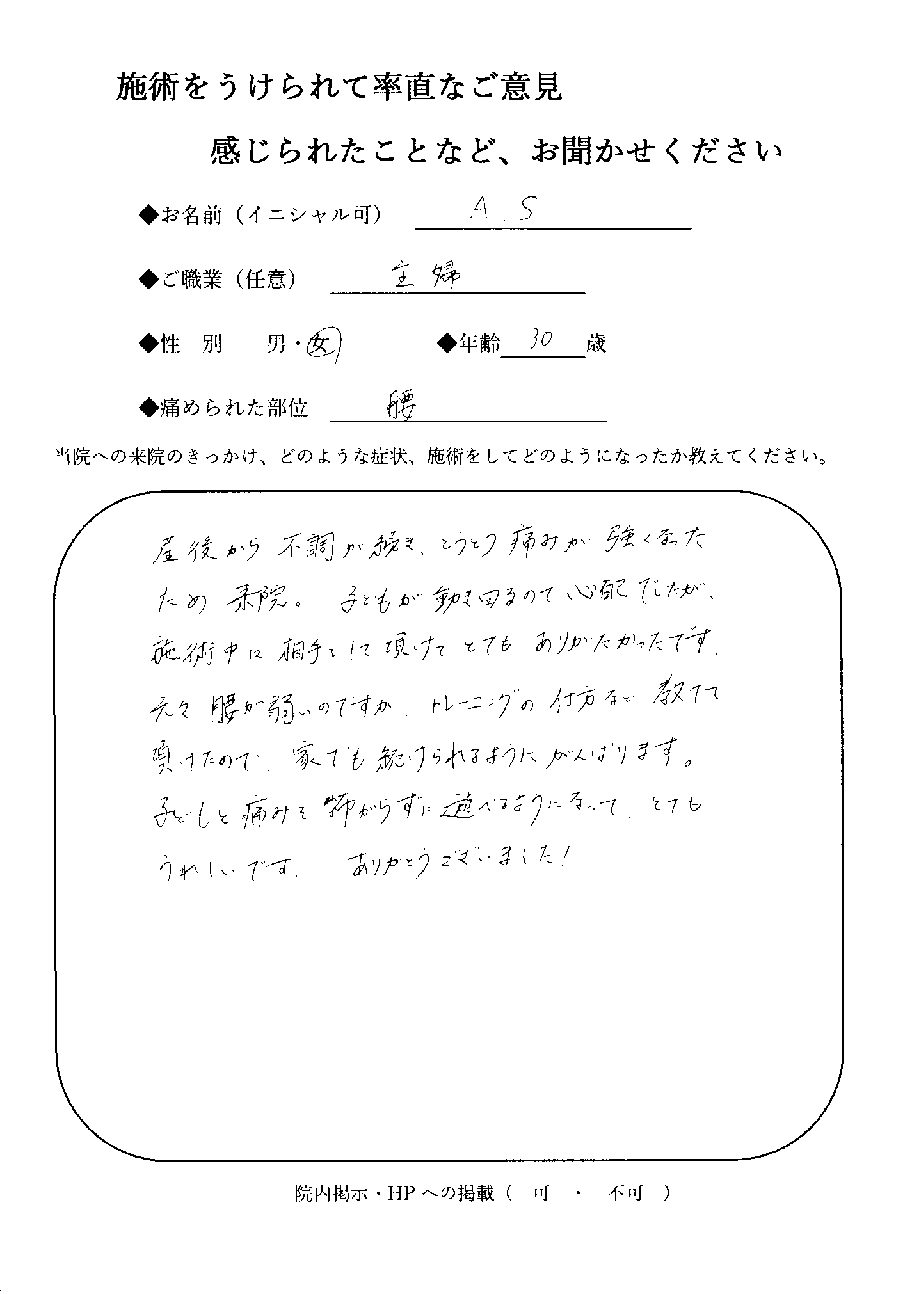 施術をうけられて率直なご意見
感じられたことなど、お聞かせください
◆お名前（イニシャル可） A.S
◆ご職業（任意） 主婦
◆性 別 男・女 ◆年齢 30 歳
◆痛められた部位 腰
当院への来院のきっかけ、どのような症状、施術をしてどのようになったか教えてください。
産後から不調が続き、とうとう痛みが強くなった
ため来院。子どもが動き回るので心配でしたが、
施術中に相手して頂けてとてもありがたかったです。
元々腰が弱いのですが、トレーニングの仕方など教えて
頂けたので、家でも続けられるようにがんばります。
子どもと痛みを怖がらずに遊べるようになって、とても
うれしいです。ありがとうございました！
院内掲示・HPへの掲載（ 可 ・ 不可 ）